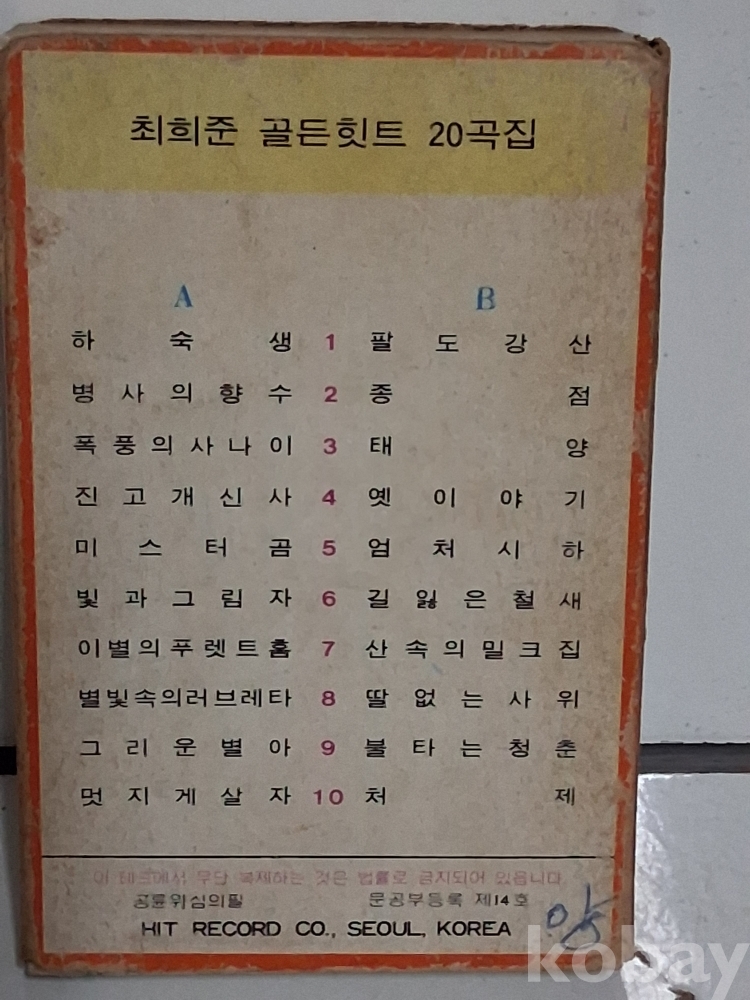 최희준 골든힛트 20곡집
A B
하숙생 1 팔도강산
병사의향수 2 종점
폭풍의사나이 3 태양
진고개신사 4 옛이야기
미스터곰 5 엄처시하
빛과그림자 6 길잃은철새
이별의푸렛트홈 7 산속의밀크집
별빛속의러브레타 8 딸없는사위
그리운별아 9 불타는청춘
멋지게살자 10 처제
이 테프에서 무단 복제하는 것은 법률로 금지되어 있읍니다.
공륜위심의필 문공부등록 제14호
HIT RECORD CO., SEOUL, KOREA
kobay